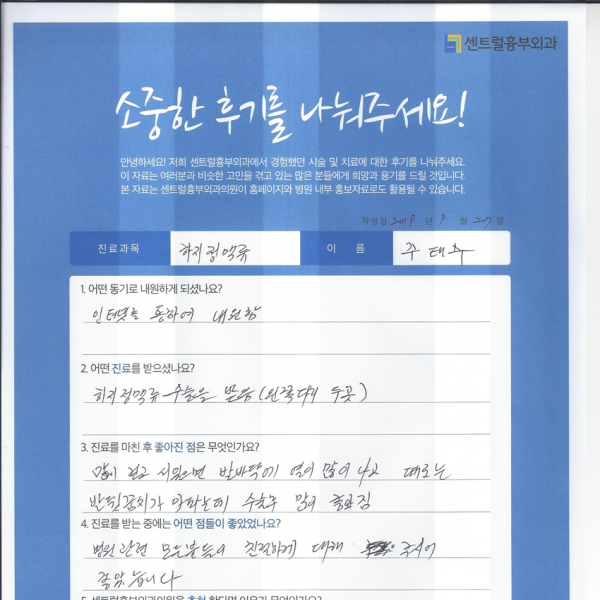 센트럴흉부외과
소중한 후기를 나눠주세요!
안녕하세요! 저희 센트럴흉부외과에서 경험했던 시술 및 치료에 대한 후기를 나눠주세요.
이 자료는 여러분과 비슷한 고민을 겪고 있는 많은 분들에게 희망과 용기를 드릴 것입니다.
본 자료는 센트럴흉부외과의원이 홈페이지와 병원 내부 홍보자료로도 활용될 수 있습니다.
작성일 2019 년 9 월 27 일
진료과목 하지정맥류 이 름 주태
1. 어떤 동기로 내원하게 되셨나요?
인터넷을 통하여 내원함
2. 어떤 진료를 받으셨나요?
하지정맥류 수술을 받음 (왼쪽다리 두곳)
3. 진료를 마친 후 좋아진 점은 무엇인가요?
많이 걷고 서있으면 발바닥에 열이 많이 나고 때로는
발뒷꿈치가 아파는데 수술후 많이 좋아짐
4. 진료를 받는 중에는 어떤 점들이 좋았었나요?
병원관련 모든분들이 친절하게 대해 주시어
좋았습니다
5. 센트럴흉부외과의원을 추천 한다면 이유가 무엇인가요?